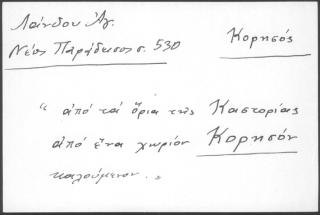 Λάνδου Ἀγ.
Νέος Παράδεισος σ. 530
Κορησός
"ἀπό τά ὅρια τῆς Καστορίας
ἀπό ἕνα χωρίον Κορησόν
καλούμενον."